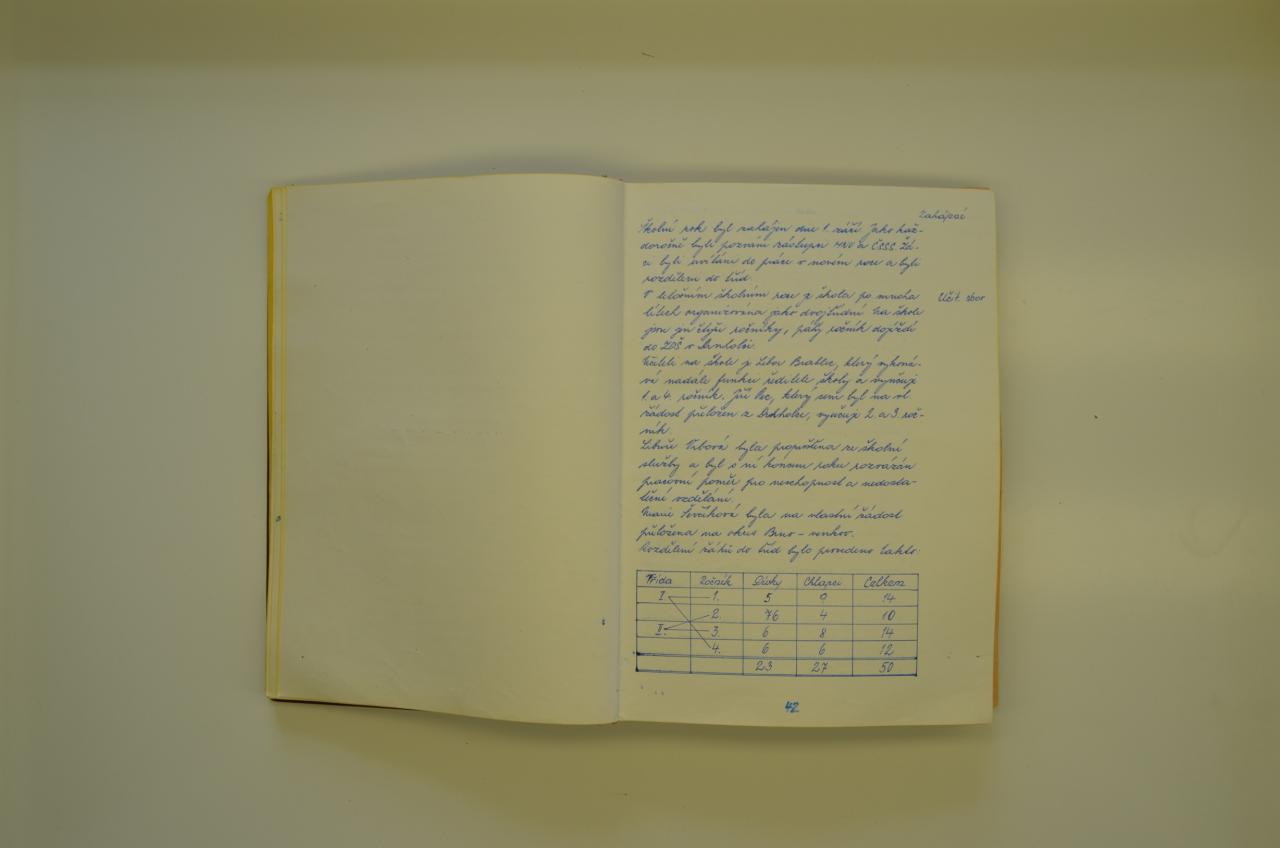 Zahájení
Školní rok byl zahájen dne 1. září. Jako kaž-
doročně byli pozváni zástupci MNV a ČSSS. Žá-
ci byli uvítáni do práce v novém roce a byli
rozděleni do tříd.
V letošním školním roce je škola po mnoha
Učit. sbor
létech organizována jako dvojtřídní. Na škole
jsou jen čtyři ročníky, pátý ročník dojíždí
do ZDŠ v Drnholci.
Učiteli na škole je Libor Brablec, který vykoná-
vá nadále funkci ředitele školy a vyučuje
1. a 4. ročník. Jiří Pec, který sem byl na vl.
žádost přeložen z Drnholce, vyučuje 2. a 3. roč-
ník.
Libuše Vrbová byla propuštěna ze školní
služby a byl s ní koncem roku rozvázán
pracovní poměr pro neschopnost a nedosta-
tečné vzdělání.
Marie Ševčíková byla na vlastní žádost
přeložena na okres Brno - venkov.
Rozdělení žáků do tříd bylo provedeno takto:
Třída Ročník Dívky Chlapci Celkem
I. 1. 5 9 14
2. 6 4 10
II. 3. 6 8 14
4. 6 6 12
23 27 50
42